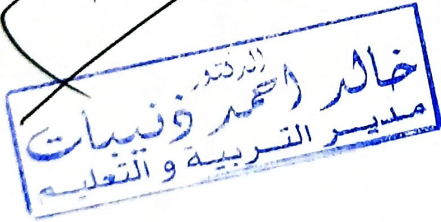 الدكتور
خالد احمد ذنيبات
مديـر التـربيـة و التعليـم